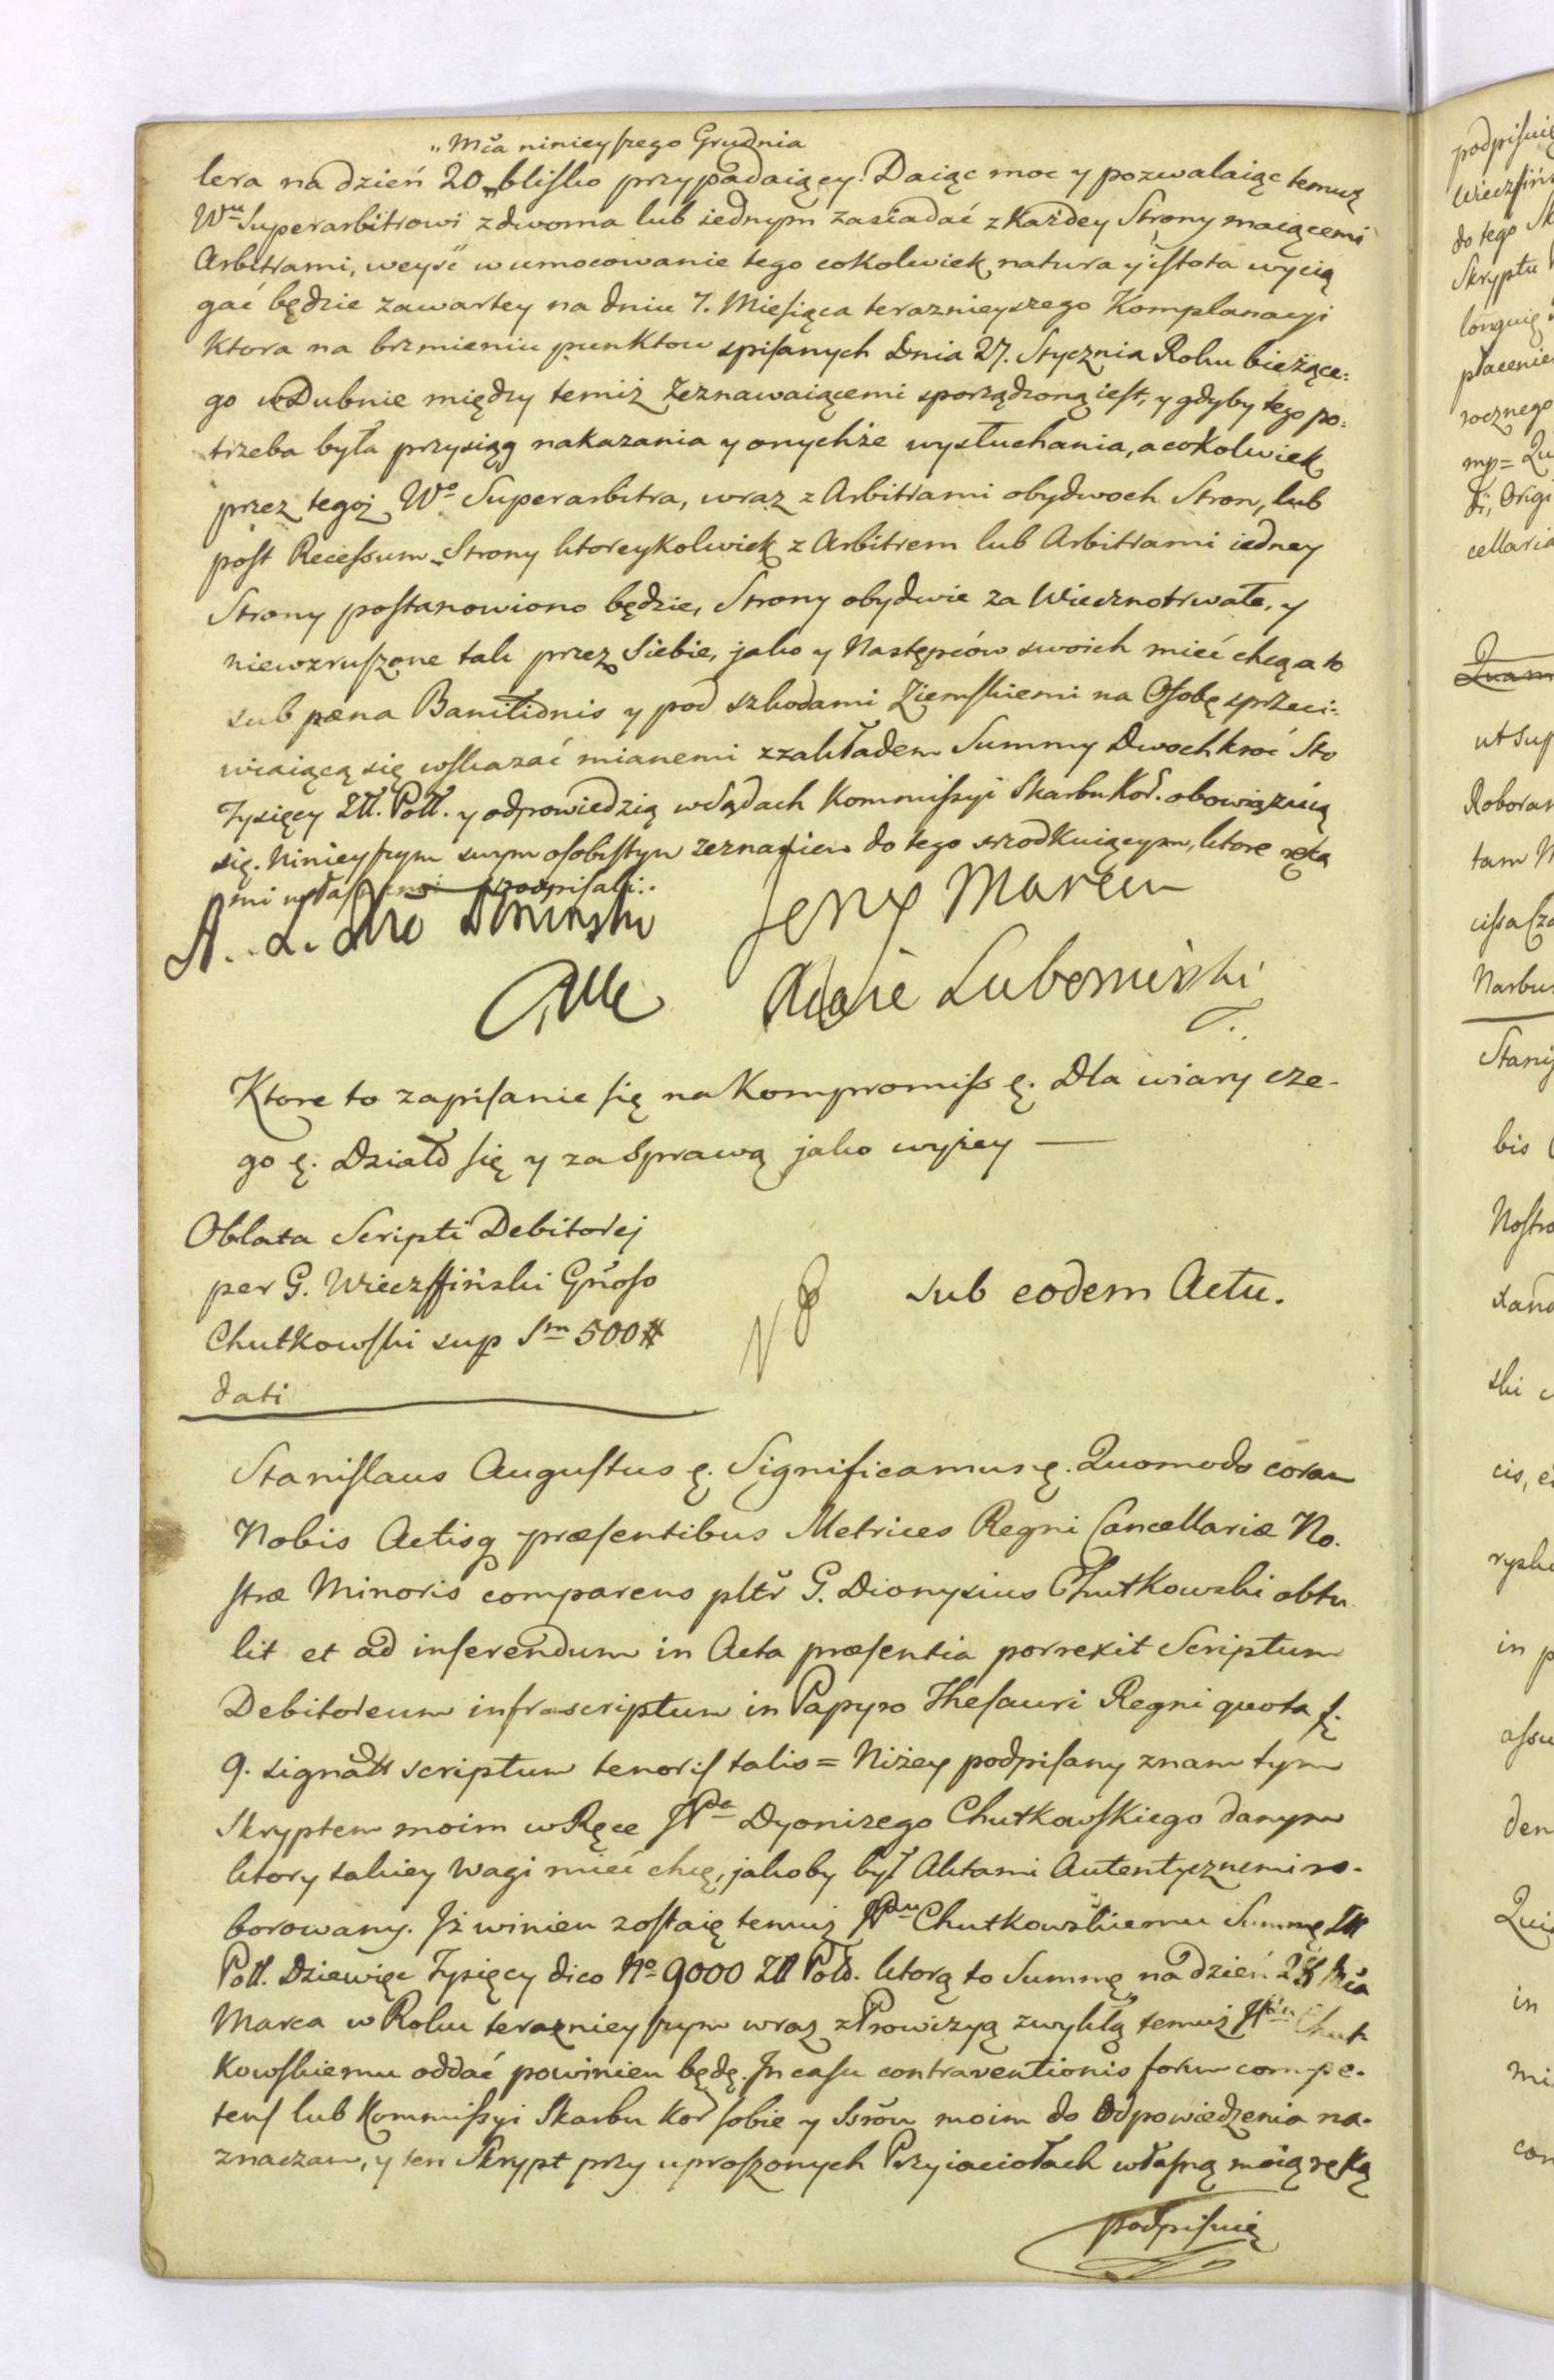 „Mca ninieyszego Grudnia
lera na dzień 20 „ blisko przypadaiący. Daiąc moc y pozwalaiąc temuż
Wu Superarbitrowi z dwoma lub iednym zasiadać z każdey Strony maiącemi
Arbitrami, weyść w umocowanie tego cokolwiek natura y istota wycią
gać będzie zawartey na dniu 7. Miesiąca teraznieyszego Komplanacyi
Ktora na brzmieniu punktow spisanych Dnia 27. Stycznia Roku bieżące=
go w Dubnie między temiż Zeznawaiącemi sporządzoną iest, y gdyby tego po=
trzeba była przysiąg nakazania y onychże wysłuchania, a cokolwiek
przez tegoż Wo Superarbitra, wraz z Arbitrami obydwoch Stron, lub
post Recessum Strony ktoreykolwiek z Arbitrem lub Arbitrami iedney
Strony postanowiono będzie, Strony obydwie za Wiecznotrwałe, y
niewzruszone tak przez Siebie, jako y Następców swoich mieć chcą a to
sub pæna Banitionis y pod szkodami Ziemskiemi na Osobę sprzeci=
wiaiącą się wskazać mianemi z zakładem Summy Dwochkroć Sto
Tysięcy Złł. Poll. y odpowiedzią w Sądach Kommissyi Skarbu Kor. obowiązuią
się. Ninieyszym swym osobistym zeznaniem do tego srzodkuiącym, ktore ręka
mi własnemi podpisali.
A. L. Xże Poninski Jerzy Marcin
Xiąże Lubomirski
Ktore to zapisanie się na Kompromiss ę. Dla wiary cze-
go ę. Działo się y za Sprawą jako wyżey —
Oblata Scripti Debitorej
per G. Wieczffiński Gnoso
Chutkowski sup Sm 500 #
dati
sub eodem Actu.
Stanislaus Augustus ę. Significamus ę. Quomodo coram
Nobis Actisq præsentibus Metrices Regni Cancellariæ No.
stræ Minoris comparens pltr G. Dionysius Chutkowski obtu
lit et ad inserendum in Acta præsentia porrexit Scriptum
Debitoreum infrascriptum in Papyro Thesauri Regni quota f.
9. scriptum tenoris talis = Niżey podpisany znam tym
Skryptem moim w Ręce JPa Dyonizego Chutkowskiego danym
ktory takiey Wagi mieć chcę, jakoby był Aktami Autentycznemi ro-
borowany. Jż winien zostaię temuż JPanu Chutkowskiemu Summę Złł
Poll. Dziewięc Tysięcy dico No 9000 Złł Poll. ktorą to Summę na dzień Mca
Marca w Roku teraznieyszym wraz z Prowizyą zwykłą temuż JPanu Chut
kowskiemu oddać powinien będę. In casu contraventionis forum compe-
tens lub Kommissyi Skarbu Kor sobie y Ssrom moim do Odpowiedzenia na-
znaczam, y ten Skrypt przy uproszonych Przyiaciołach własną moią ręką
podpisuię